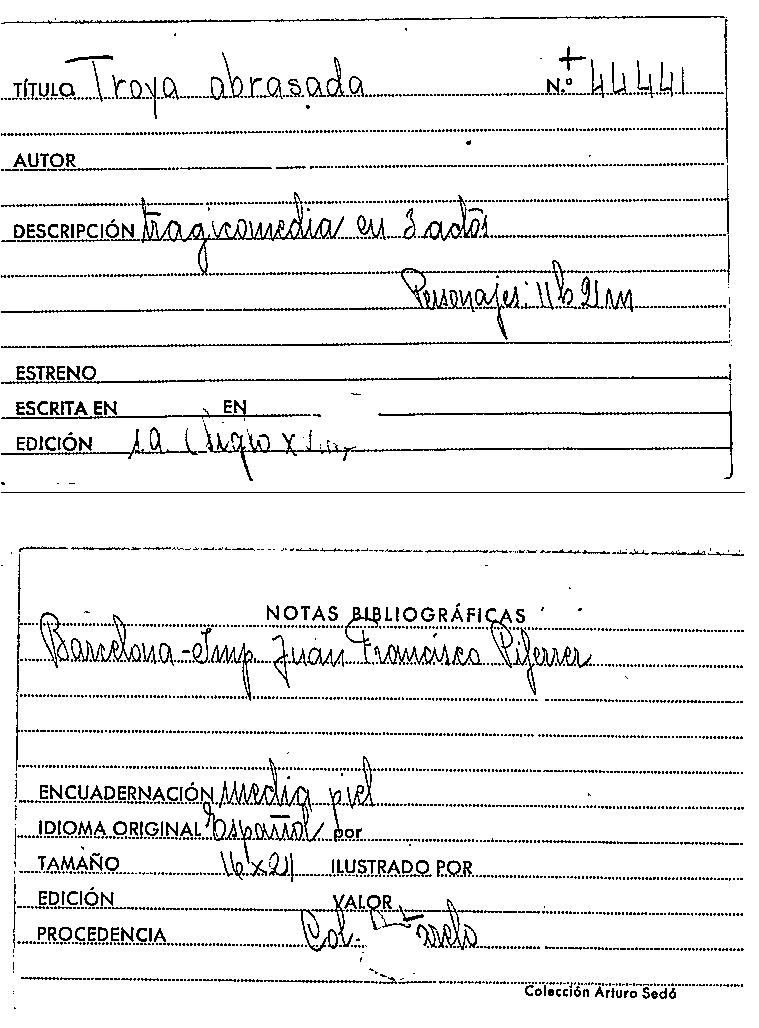 TÍTULO Troya abrasada N.º + 44441
AUTOR
DESCRIPCIÓN tragicomedia en 3 actos
Personajes: 11h 21m
ESTRENO
ESCRITA EN EN
EDICIÓN Siglo
NOTAS BIBLIOGRÁFICAS
Barcelona - Imp. Juan Francisco Piferrer
ENCUADERNACIÓN media piel
IDIOMA ORIGINAL Español por
TAMAÑO 16x21 ILUSTRADO POR
EDICIÓN VALOR
PROCEDENCIA Col.
Colección Arturo Sedó